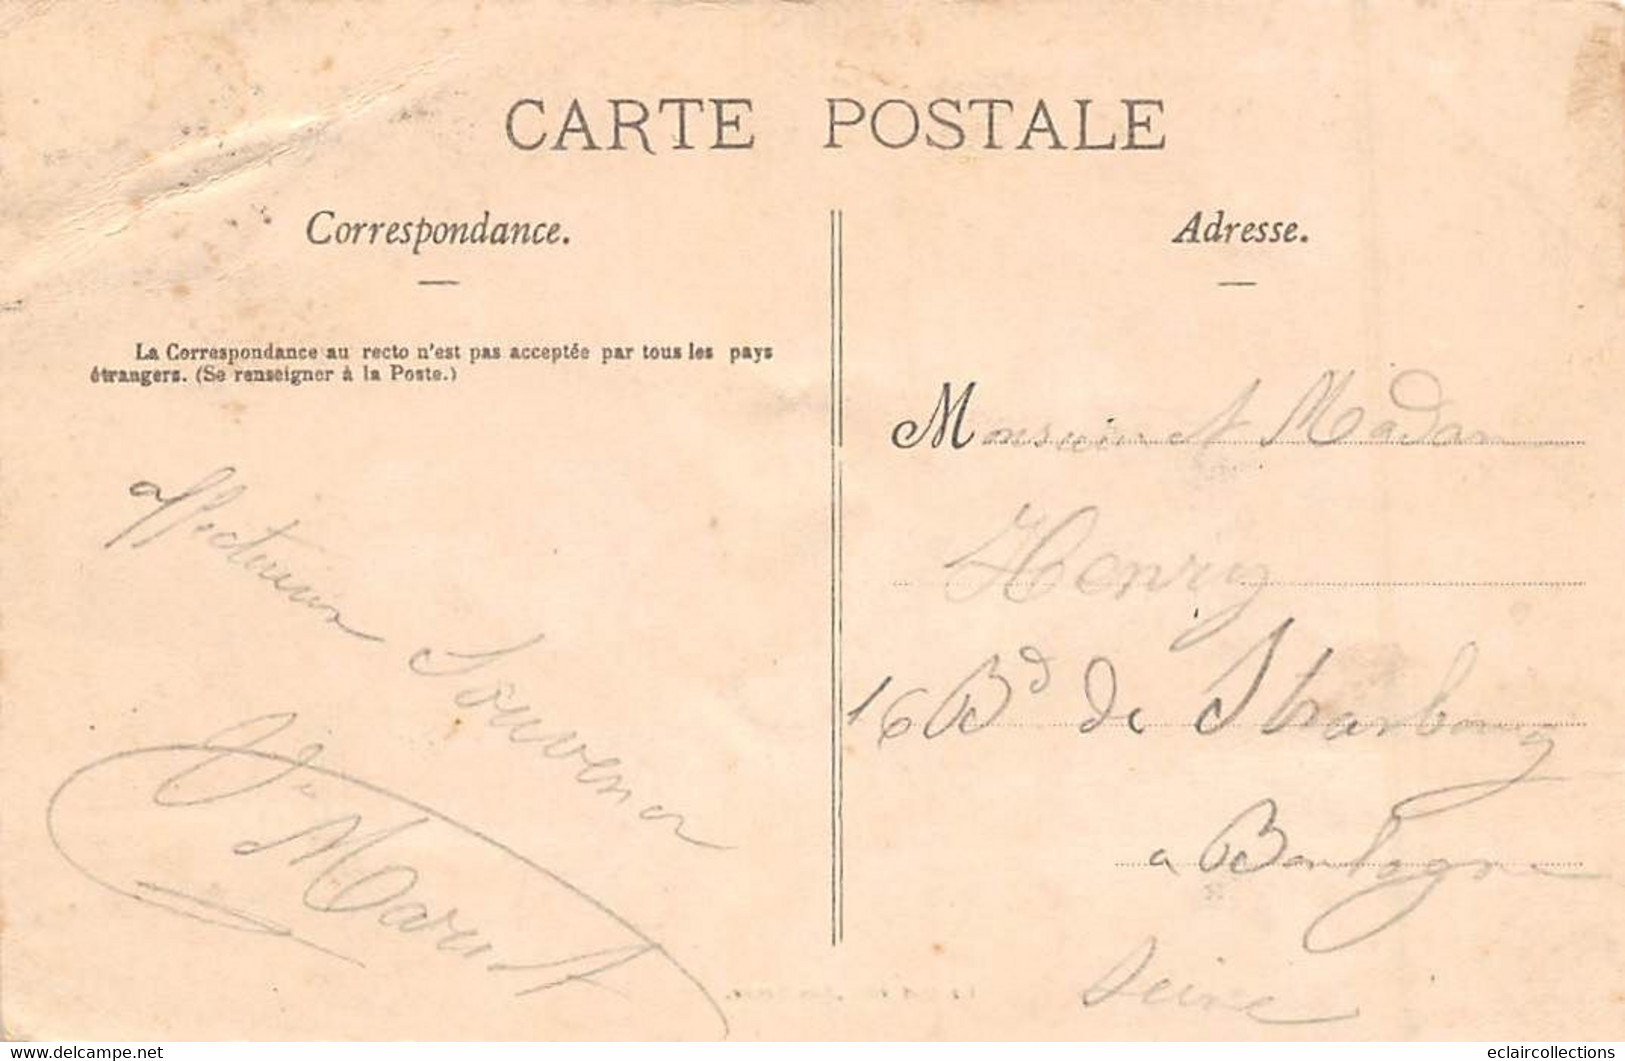 CARTE POSTALE
Correspondance.
Adresse.
La Correspondance au recto n'est pas acceptée par tous les pays
étrangers. (Se renseigner à la Poste.)
Monsieur et Madam
Henry
16 Bd de Strasbourg
a Boulogne
Seine
affectueux
Souvenir
eclaircollections
www.delcampe.net